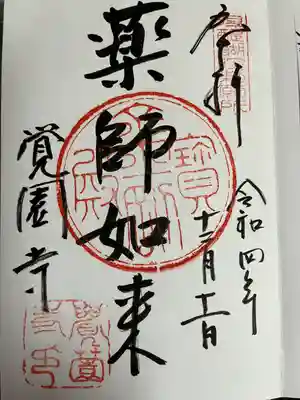 奉拝
令和四年
十二月
薬師如来
覚園寺
覺園寺印